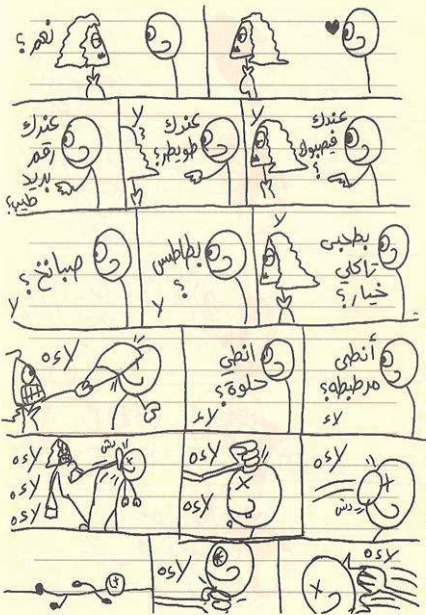 نعم؟
عندك
فيصبوك
؟
لا
عندك
طويطر؟
لا
عندك
رقم
بريد
طيب؟
بطحبي
تاكلي
خيار؟
لا
بطاطس
؟
لا
صبانخ؟
لا
أنطي
مرطبطه؟
لاء
انطي
حلوة؟
لاء
لاءه
لاءه
دش
لاءه
لاءه
دش
لاءه
لاءه
لاءه
لاءه